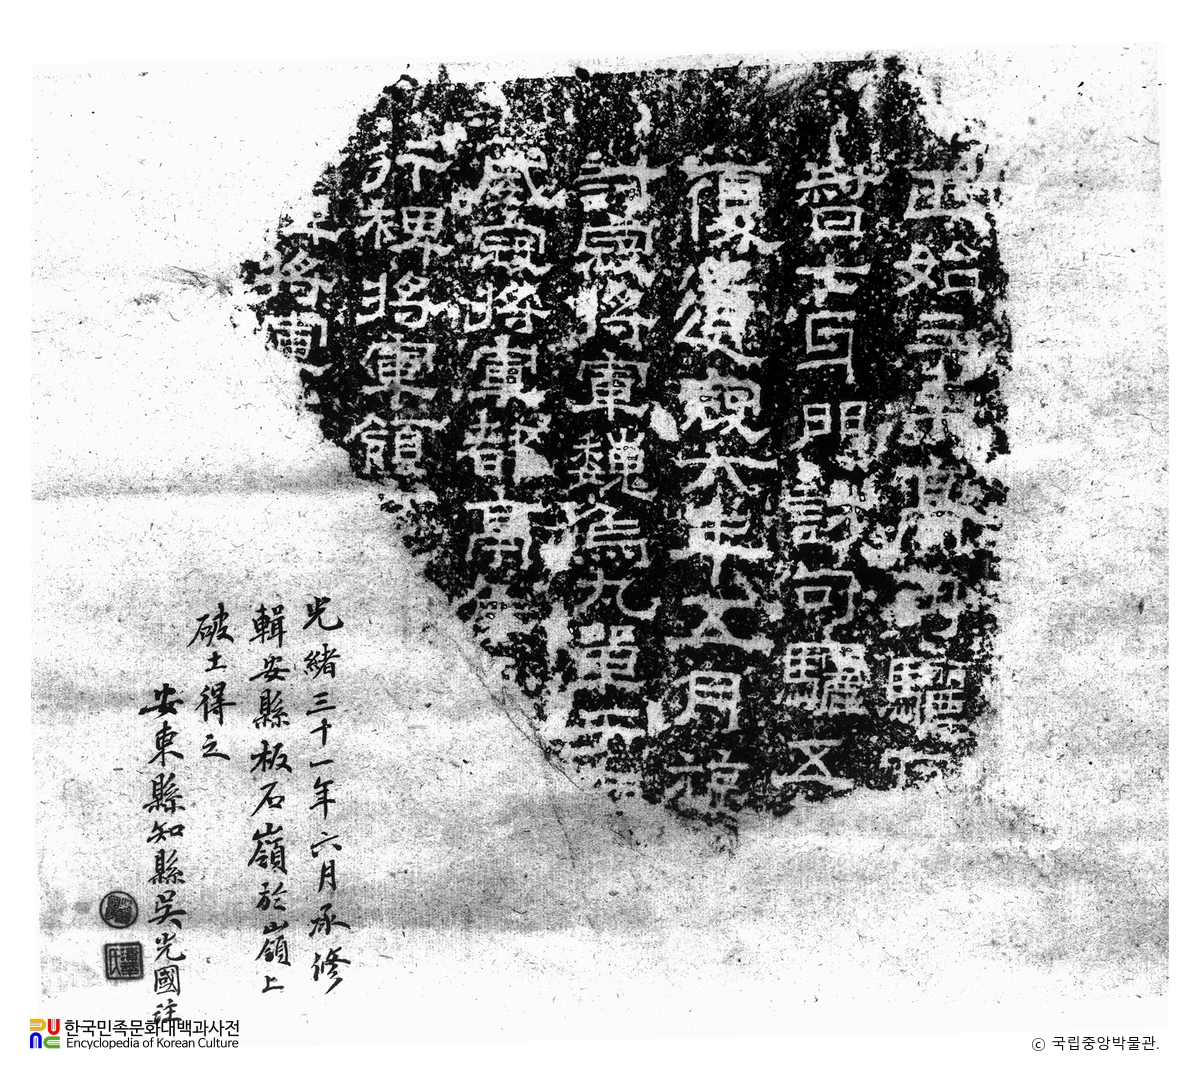 正始三年高句驪
督七牙門討句驪五
復遺寇六年五月旋
討寇將軍魏烏丸單于
威寇將軍都亭侯
行裨將軍領
將軍
光緒三十一年六月承修
輯安縣板石嶺於嶺上
破土得之
安東縣知縣吳光國註
한국민족문화대백과사전
Encyclopedia of Korean Culture
© 국립중앙박물관.